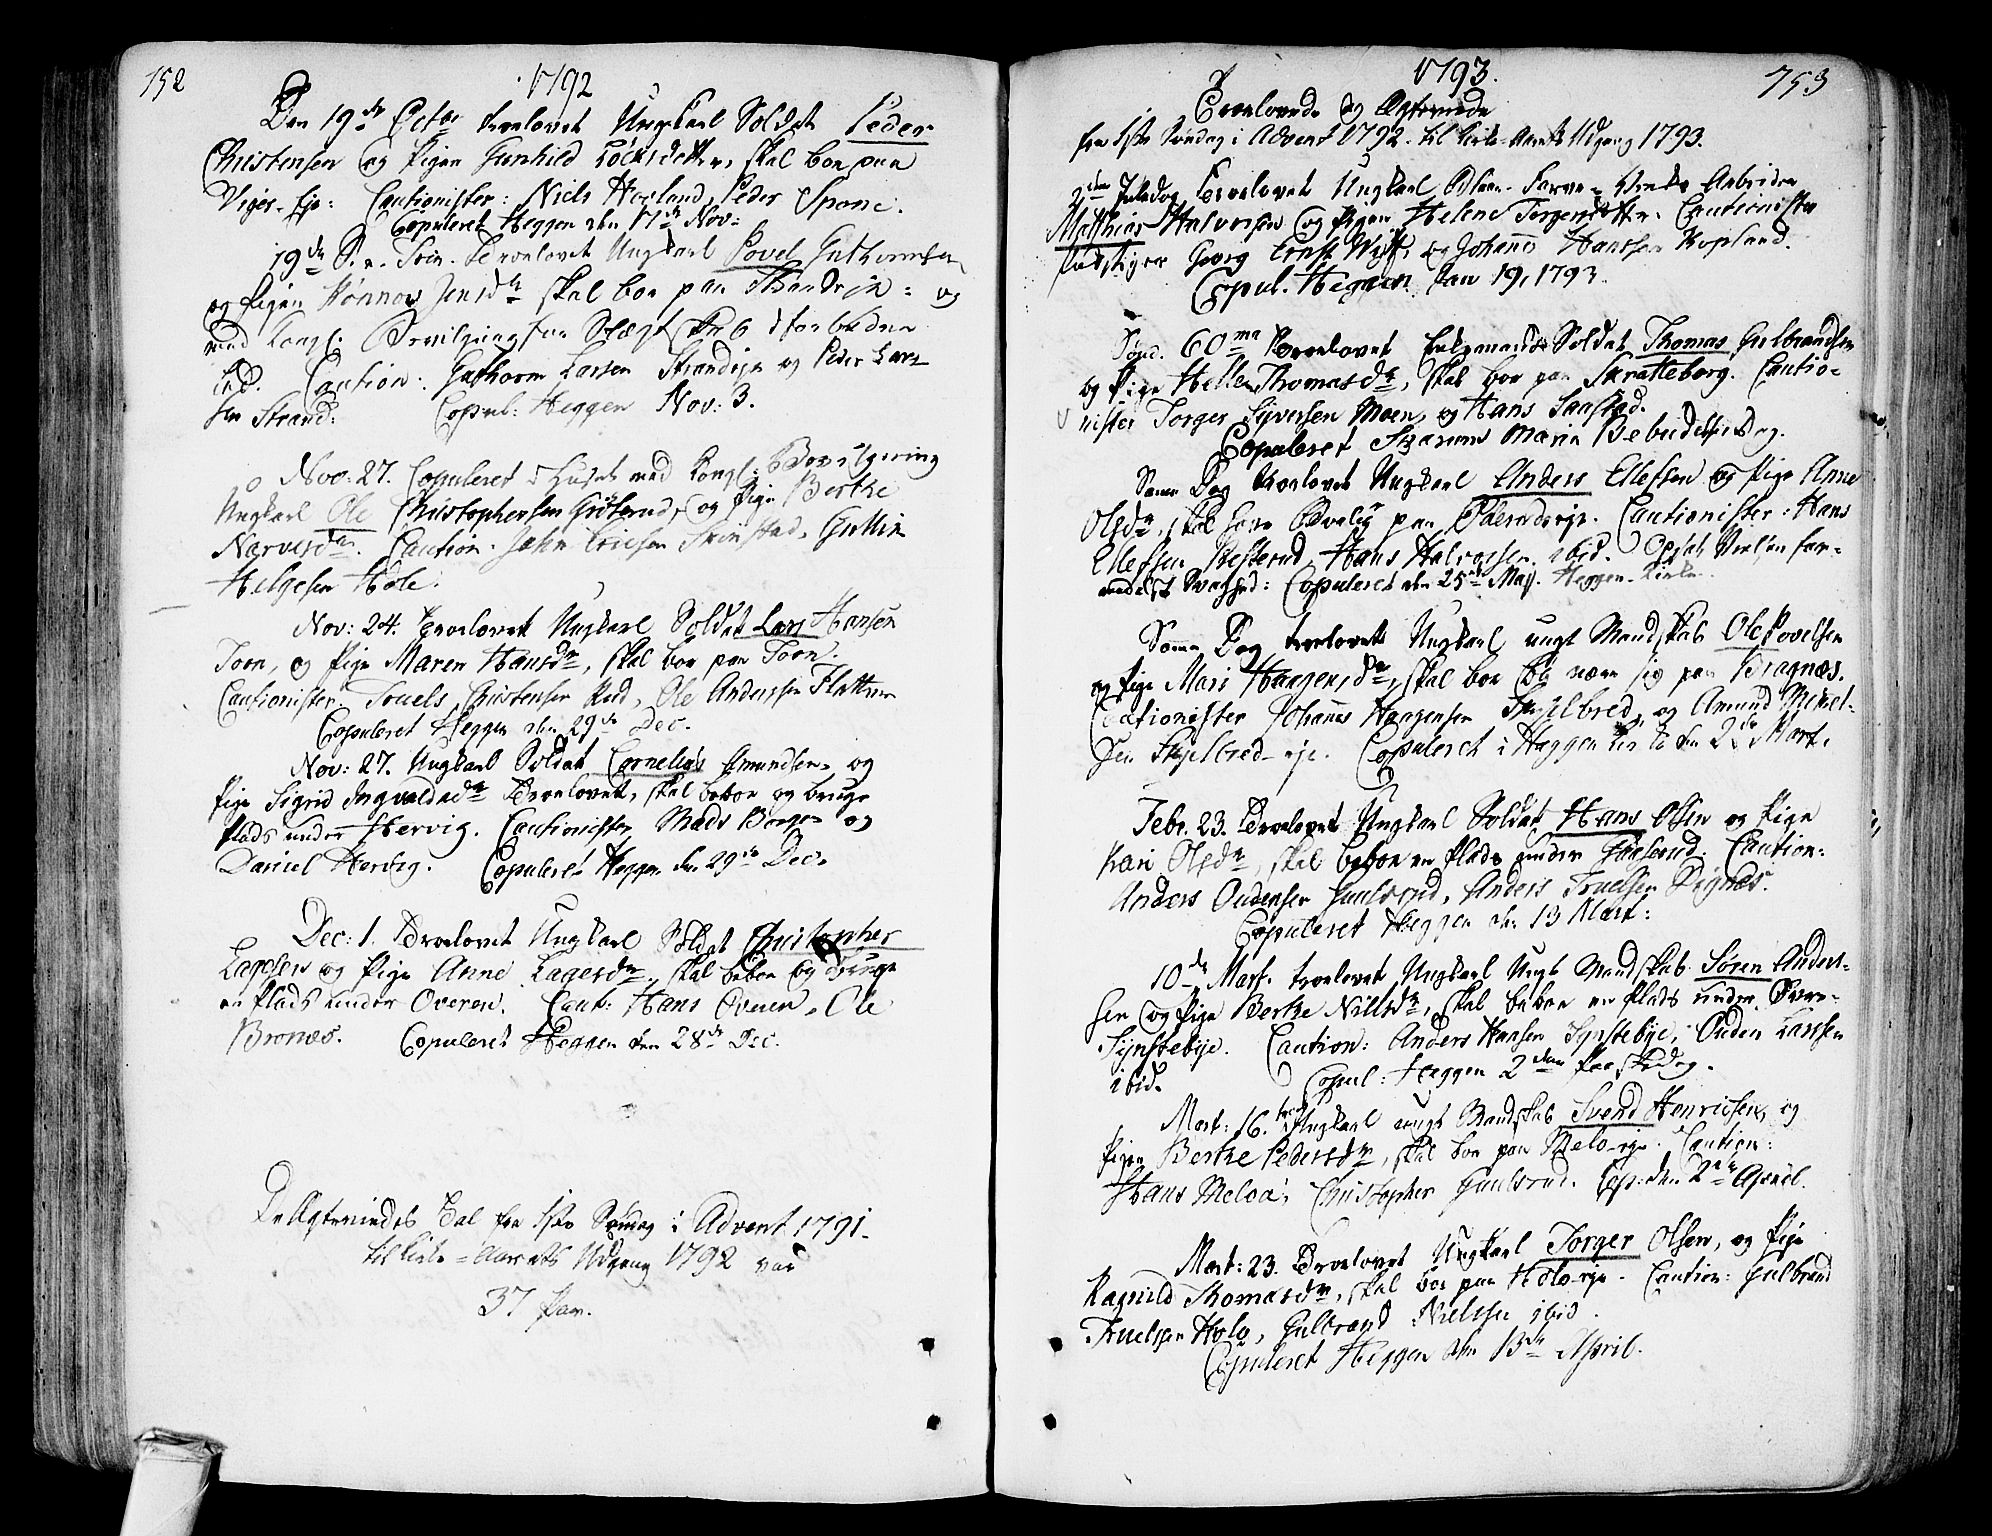 152
1792
Den 19de Octbr trolovet Ungkarl Soldat Peder
Christensen og Pigen Gunhild Lochsdatter, skal boe paa
Viger-Eje: Cautionister: Niels Horland, Peder Spone.
Copuleret Heggen den 17de Nov:
19de S. p. Trin. Trolovet Ungkarl Povel Guthormsen
og Pigen Rønnov Jensdr skal boe paa Strandeje: og
med Kongl. Bevilgning for Slægtskab i forbuden
Led. Caution: Guthorm Larsen Strandeje og Peder Lar-
sen Strand: Copul: Heggen Nov: 3.
Nov: 27. Copuleret i Huset med Kongl: Bevilgning
Ungkarl Ole Christophersen Grøterud, og Pige Berthe
Narvesdr. Caution: John Ericsen Trinstad, Guttir
Helgesen Hole.
Nov: 24. Trolovet Ungkarl Soldat Lars Hansen
Toen, og Pige Maren Hansdr, skal boe paa Toen.
Cautionister. Truels Christensen Rud, Ole Andersen Flattum
Copuleret Heggen den 29de Dec.
Nov: 27. Ungkarl Soldat Cornelius Amundsen og
Pige Sigrid Ingvaldsdr Trolovet, skal beboe og bruge
Plads under Hervig. Cautionister Mads Borgen og
Daniel Hervig. Copuleret Heggen den 29de Dec.
Dec: 1. Trolovet Ungkarl Soldat Christopher
Lagesen og Pige Anne Lagesdr, skal beboe og bruge
en Plads under Overen. Caut: Hans Overen, Ole
Bronæs. Copuleret Heggen den 28de Dec.
De Ægteviedes Tal fra 1ste Søndag i Advent 1791.
til Kirke-Aarets Udgang 1792 var
37 Par.
1793.
753
Trolovede og Ægteviede
fra 1ste Søndag i Advent 1792. til Kirke-Aarets Udgang 1793.
2den Juledag Trolovet Ungkarl Blaae-Farve-Verks Arbeider
Matthias Halvorsen og Pigen Helene Torgersdatter. Cautionister
Georg Ernst Wolff, og Johannes Hansen Kopland.
Copul. Heggen Jan 19, 1793.
Sønd. 60ma Trolovet Enkemand Soldat Thomas Gulbrandsen
og Pige Hellene Thomasdr, skal boe paa Skratteborg. Cautio-
nister Torger Syversen Moen, og Hans Saastad.
Copuleret Snarum Mariæ Bebudelsesdag.
Samme Dag trolovet Ungkarl Anders Ellefsen og Pige Anne
Olsdr, skal have Bolig paa
Cautionister: Hans
Ellefsen Hans Halvorsen ibid. Opsat Vielsen for-
medelst Svaghed: Copuleret den 25de Maj. Heggen-Kirke.
Samme Dag trolovet Ungkarl ungt Mandskab Ole Povelsen
og Pige Mari Haagensdr, skal boe og nære sig paa Bragnæs.
Cautionister Johannes Haagensen Skjelbred, og Amund Mikel-
sen Skjelbred-eje. Copuleret i Heggen Kirke den 2de Mart.
Febr. 23. Trolovet Ungkarl Soldat Hans Olsen og Pige
Kari Olsdr, skal beboe en Plads under Gaaserud. Caution:
Anders Oudensen Gaulsrud, Anders Truelsen Rignæs.
Copuleret Heggen den 13 Mart:
10de Mart. trolovet Ungkarl Ungt Mandskab Søren Anders-
sen og Pige Berthe Nillsdr, skal beboe en Plads under
Synstebye. Caution: Anders Hansen Synstebye, Ouden Larssen
ibid. Copul: Heggen 2den Paaskedag.
Mart: 16. trol Ungkarl ungt Mandskab Svend Henricsen, og
Pigen Berthe Pedersdr, skal boe paa Melo-eje. Caution:
Hans Meloa, Christopher Gaulsrud. Cop: den 2de April.
Mart: 23. Trolovet Ungkarl Torger Olsen, og Pige
Ragnild Thomasdr, skal boe paa Holo-eje. Caution: Gulbrand
Truelsen Holo, Gulbrand Nielsen ibid.
Copuleret Heggen den 13de April.